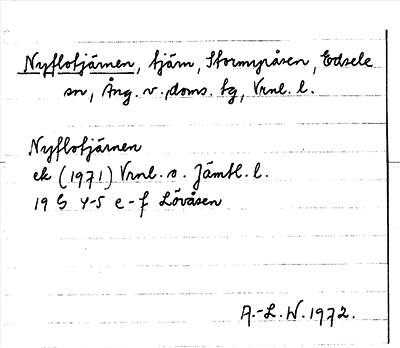 Nyflotjärnen, tjärn, Stormyråsen, Edsele
sn, Ång. v. doms. tg, Vrnl. l.
Nyflotjärnen
ek (1971) Vrnl. o. Jämtl. l.
19 G 4-5 e-f Lövåsen
A.-L. W. 1972.